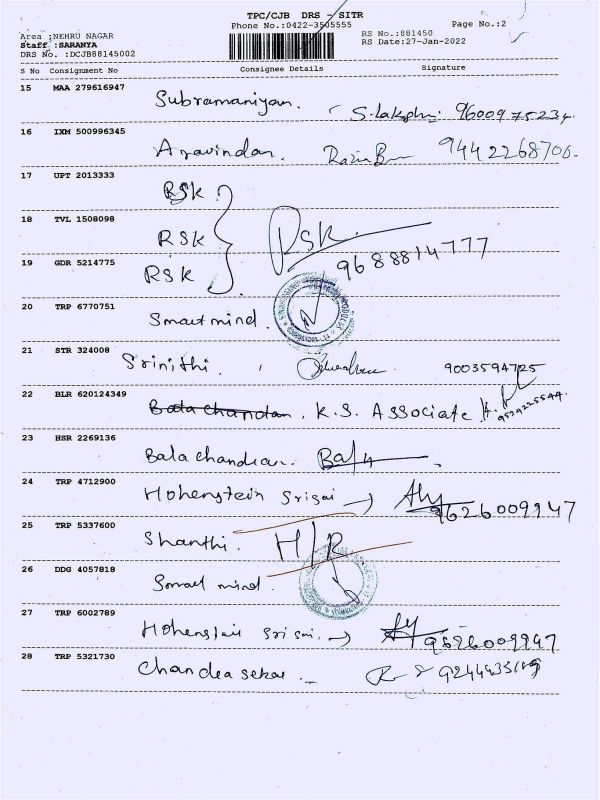 TPC/CJB DRS - SITR
Phone No.:0422-3505555
Page No.:2
Area :NEHRU NAGAR
RS No.:881450
Staff :SARANYA
RS Date:27-Jan-2022
DRS No. :DCJB88145002
S No Consignment No Consignee Details Signature
15 MAA 279616947
Subramaniyan. S.lakshmi 9600975234
16 IXM 500996345
Aravindan. 9442268706.
17 UPT 2013333
RSK.
18 TVL 1508098
RSK RSK.
9688814777
19 GDR 5214775
RSK
20 TRP 6770751
Smart mind.
21 STR 324008
Srinithi. 9003594725
22 BLR 620124349
Bala chandran. K.S. Associate
23 HSR 2269136
Balachandran. Bala
24 TRP 4712900
Hohenstein Srisai 9626009947
25 TRP 5337600
Shanthi. H/R
26 DDG 4057818
Smart mind.
27 TRP 6002789
Hohenstein Srisai. 9626009947
28 TRP 5321730
Chandrasekar.